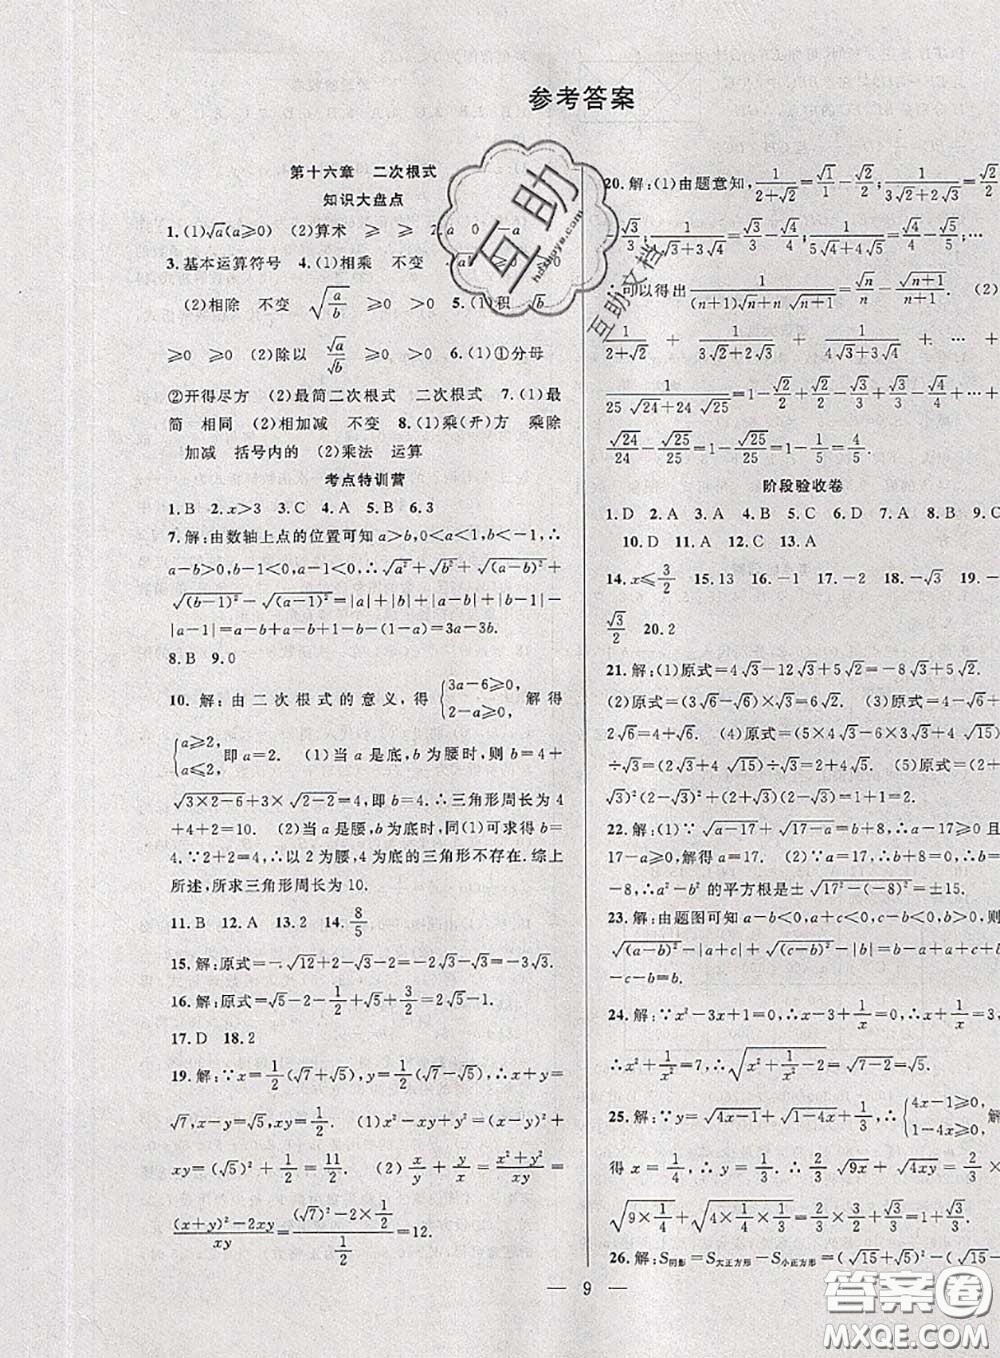 参考答案
第十六章 二次根式
知识大盘点
1.(1)√a(a≥0) (2)算术 ≥ ≥ 2.a 0 -a
3.基本运算符号 4.(1)相乘 不变 ≥0 ≥0
(2)相除 不变 √(a/b) ≥0 >0 5.(1)积 √b
≥0 ≥0 (2)除以 √a/√b ≥0 >0 6.(1)①分母
②开得尽方 (2)最简二次根式 二次根式 7.(1)最
简 相同 (2)相加减 不变 8.(1)乘(开)方 乘除
加减 括号内的 (2)乘法 运算
考点特训营
1.B 2.x>3 3.C 4.A 5.B 6.3
7.解:由数轴上点的位置可知a>b,0<a<1,b<-1,∴
a-b>0,b-1<0,a-1<0,∴√a²+√b²+√(a-b)²+
√(b-1)²-√(a-1)²=|a|+|b|+|a-b|+|b-1|-
|a-1|=a-b+a-b+1-b-(1-a)=3a-3b.
8.B 9.0
10.解:由二次根式的意义,得{3a-6≥0, 2-a≥0,解得
{a≥2, a≤2,即a=2. (1)当a是底,b为腰时,则b=4+
√(3×2-6)+3×√(2-2)=4,即b=4,∴三角形周长为4+
4+2=10. (2)当a是腰,b为底时,同(1)可求得b=
4.∵2+2=4,∴以2为腰,4为底的三角形不存在.综上
所述,所求三角形周长为10.
11.B 12.A 13.2 14.8/5
15.解:原式=-√12+2-√3-2=-2√3-√3=-3√3.
16.解:原式=√5-2-1/2+√5+3/2=2√5-1.
17.D 18.2
19.解:∵x=1/2(√7+√5),y=1/2(√7-√5),∴x+y=
√7,x-y=√5,xy=1/2. (1)x²-xy+y²=(x-y)²+
xy=(√5)²+1/2=11/2. (2)x/y+y/x=(x²+y²)/xy=
((x+y)²-2xy)/xy=((√7)²-2×1/2)/(1/2)=12.
20.解:(1)由题意知,1/(2+√2)=√1/1-√2/2;1/(3√2+2√3)=√2/2
-√3/3;1/(4√3+3√4)=√3/3-√4/4;1/(5√4+4√5)=√4/4-√5/5;…
∴可以得出1/((n+1)√n+n√(n+1))=√n/n-√(n+1)/(n+1). (2)
1/(2+√2)+1/(3√2+2√3)+1/(4√3+3√4)+…+
1/(25√24+24√25)=1-√2/2+√2/2-√3/3+√3/3-√4/4+…+
√24/24-√25/25=1-√25/25=1-1/5=4/5.
阶段验收卷
1.D 2.A 3.A 4.B 5.C 6.D 7.A 8.B 9.C
10.D 11.A 12.C 13.A
14.x≤3/2 15.13 16.-1 17.-2 18.-√3 19.-
√3/2 20.2
21.解:(1)原式=4√3-12√3+5√2=-8√3+5√2.
(2)原式=(3√6-√6)×√3=6√2. (3)原式=4-√6+
2√6=4+√6. (4)原式=(5×4√3-6×3√3+4√15)
÷√3=(2√3+4√15)÷√3=2+4√5. (5)原式=(2+
√3)²(2-√3)²=1+1=2.
22.解:(1)∵√(a-17)+√(17-a)=b+8,∴a-17≥0且
17-a≥0,解得a=17. (2)∵a=17,∴b+8=0,∴b=
-8,∴a²-b²的平方根是±√(17²-(-8)²)=±15.
23.解:由题图可知a-b<0,a+c<0,c-b<0,b>0,则
√(a-b)²-|a+c|+√(c-b)²-|b|=b-a+a+
c-c+b-b=b.
24.解:∵x²-3x+1=0,∴x-3+1/x=0,∴x+1/x=3,
∴x²+1/x²=7,∴√(x²+1/x²-2)=√(7-2)=√5.
25.解:∵y=√(4x-1)+√(1-4x)+1/3,∴{4x-1≥0, 1-4x≥0,
得x=1/4,∴y=1/3,∴√9x+√4xy=
√(9×1/4)+√(4×1/4×1/3)=3/2+√3/3
26.解:∵S阴影=S大正方形-S小正方形=(√15+√5)²-(√15
9
互助
hzshuye.com
互助文档
答案圈
MXQE.COM